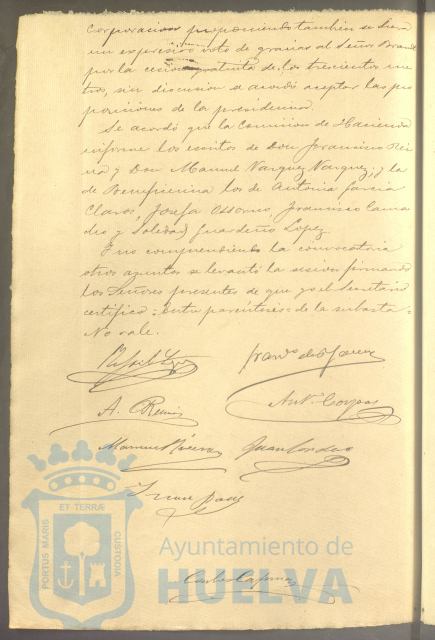 Corporacion proponiendo tambien se diera
un expresivo voto de gracias al Señor Brand
por la cesion gratuita de los trescientos me
tros, sin discusion se acordó aceptar las pro
posiciones de la presidencia.
Se acordó que la Comision de Hacienda
informe los escritos de Don Francisco Rei
na y Don Manuel Vazquez Vazquez, y la
de Beneficencia los de Antonia Garcia
Claros, Josefa Osorno, Francisco Cama
cho y Soledad Guardeño Lopez.
Y no comprendiendo la convocatoria
otros asuntos se levantó la sesion firmando
los Señores presentes de que yo el Secretario
certifico = entre parentesis = de la subasta =
No vale.
A.
Ant. Corpas
Manuel
Juan Cordero
PORTUS MARIS
ET TERRÆ
CUSTODIA
Ayuntamiento de
HUELVA